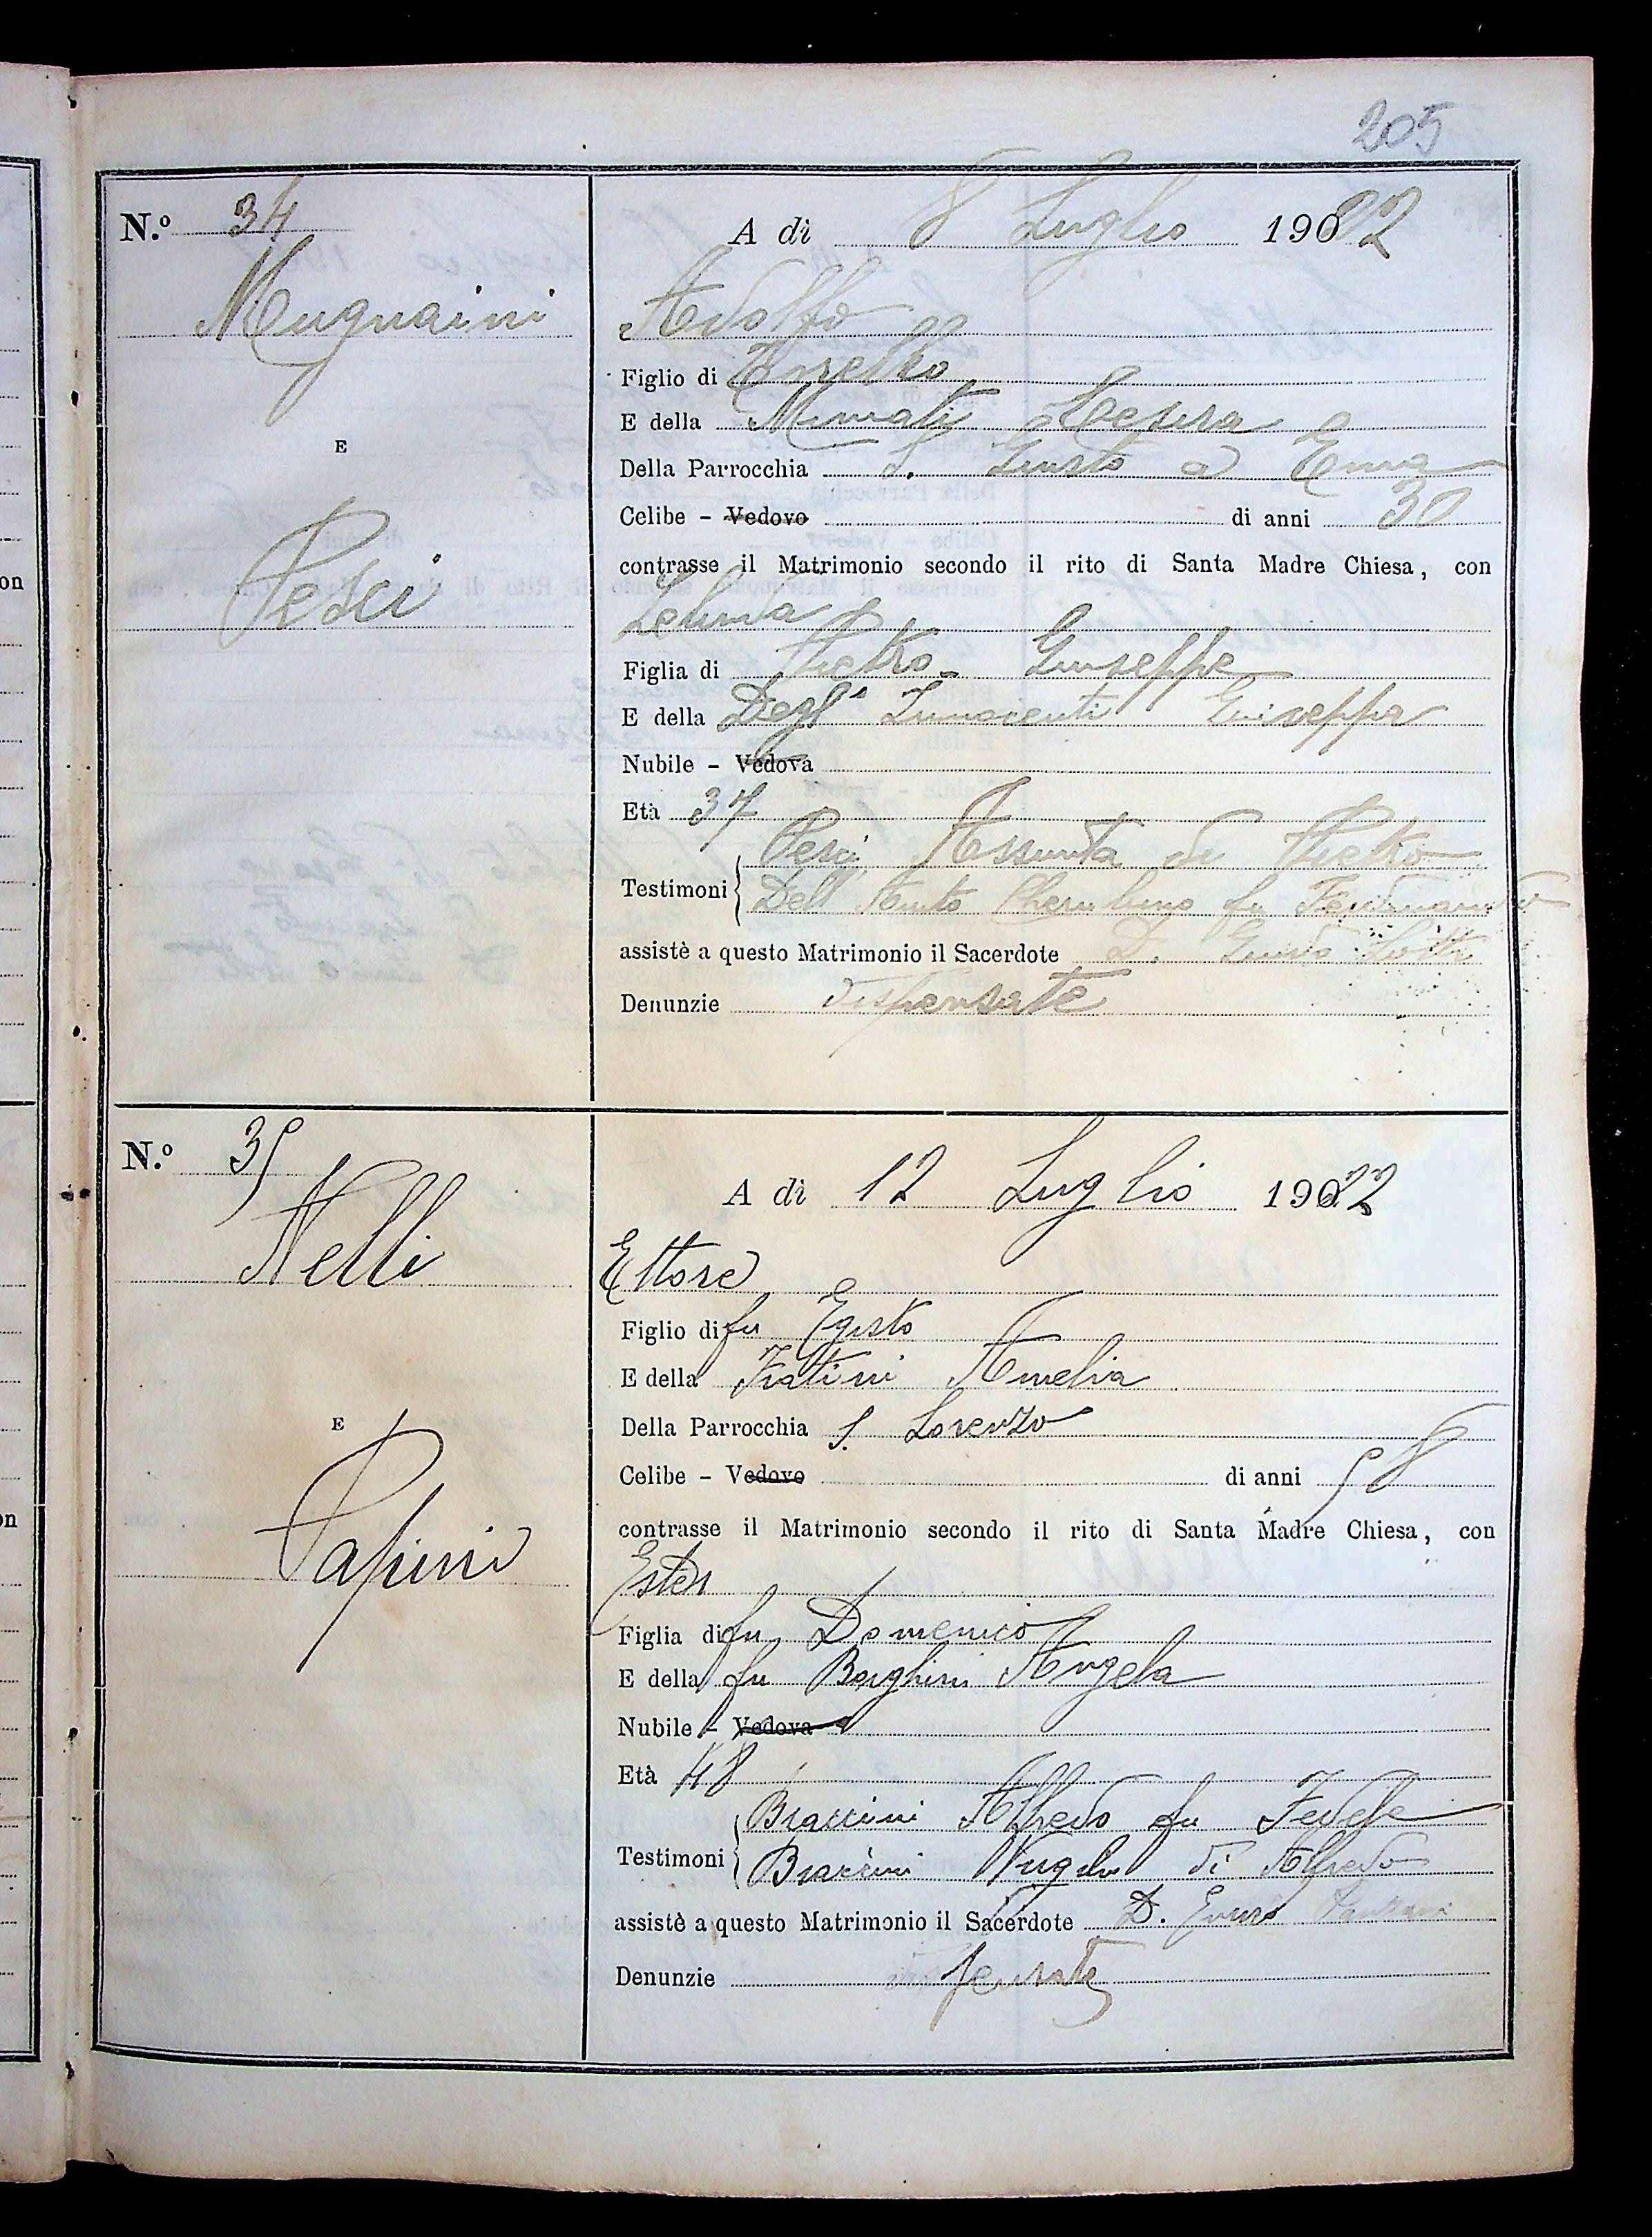 205
N.º 34
Mugnaini
E
Pesci
A dì 8 Luglio 1922
Adolfo
Figlio di
E della Cesira
Della Parrocchia S. Giusto a Ema
Celibe - Vedovo di anni 30
contrasse il Matrimonio secondo il rito di Santa Madre Chiesa, con
Figlia di Pietro Giuseppe
E della Degl' Innocenti Giuseppa
Nubile - Vedova
Età 37
Testimoni Pesci Assunta di Pietro
Dell' Amito Cherubino fu Ferdinando
assistè a questo Matrimonio il Sacerdote D. Guido
Denunzie dispensate
N.º 35
Nelli
E
Papini
A dì 12 Luglio 1922
Ettore
Figlio di fu Egisto
E della Frattini Amelia
Della Parrocchia S. Lorenzo
Celibe - Vedovo di anni 58
contrasse il Matrimonio secondo il rito di Santa Madre Chiesa, con
Ester
Figlia di fu Domenico
E della fu Borghini Angela
Nubile - Vedova
Età 48
Testimoni Braccini Alfredo fu Fedele
Braccini Angelo di Alfredo
assistè a questo Matrimonio il Sacerdote D.
Denunzie dispensate
on
on